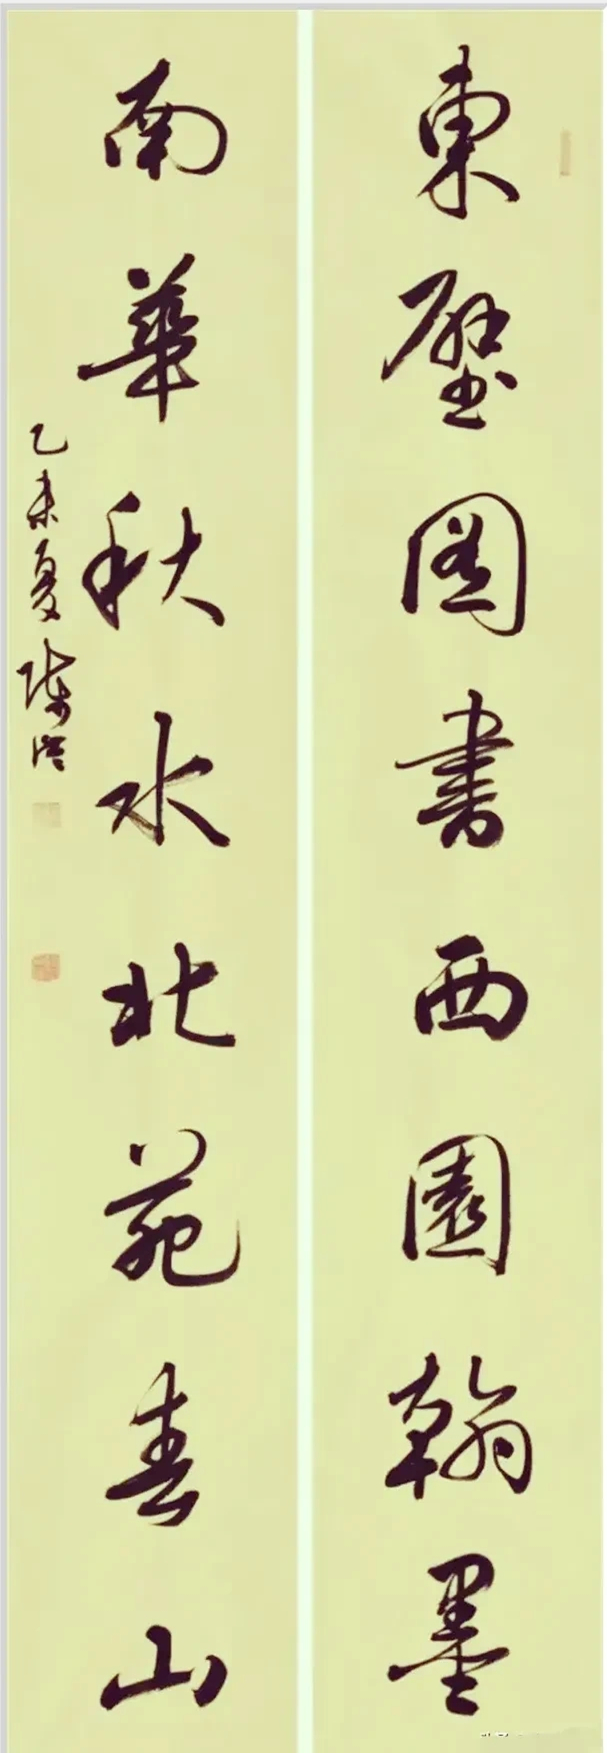 東壁图書西園翰墨
南華秋水北苑春山
乙未夏